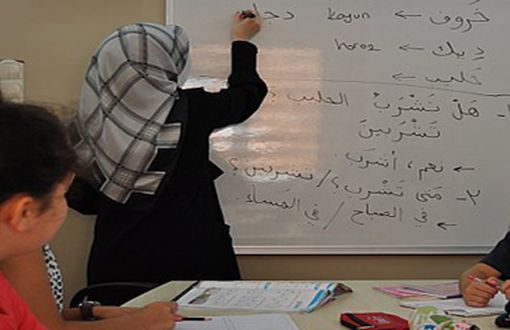 خَروف ← koyun دجا
دِيك ← horoz
حليب ←
١- هَلْ تَشْرَبُ الحليب ؟
تَشْرَبينَ
← نعم، أشرب
٢- مَتَى تَشْرب ؟ / تشربين ؟
← في الصباح / في المَساء